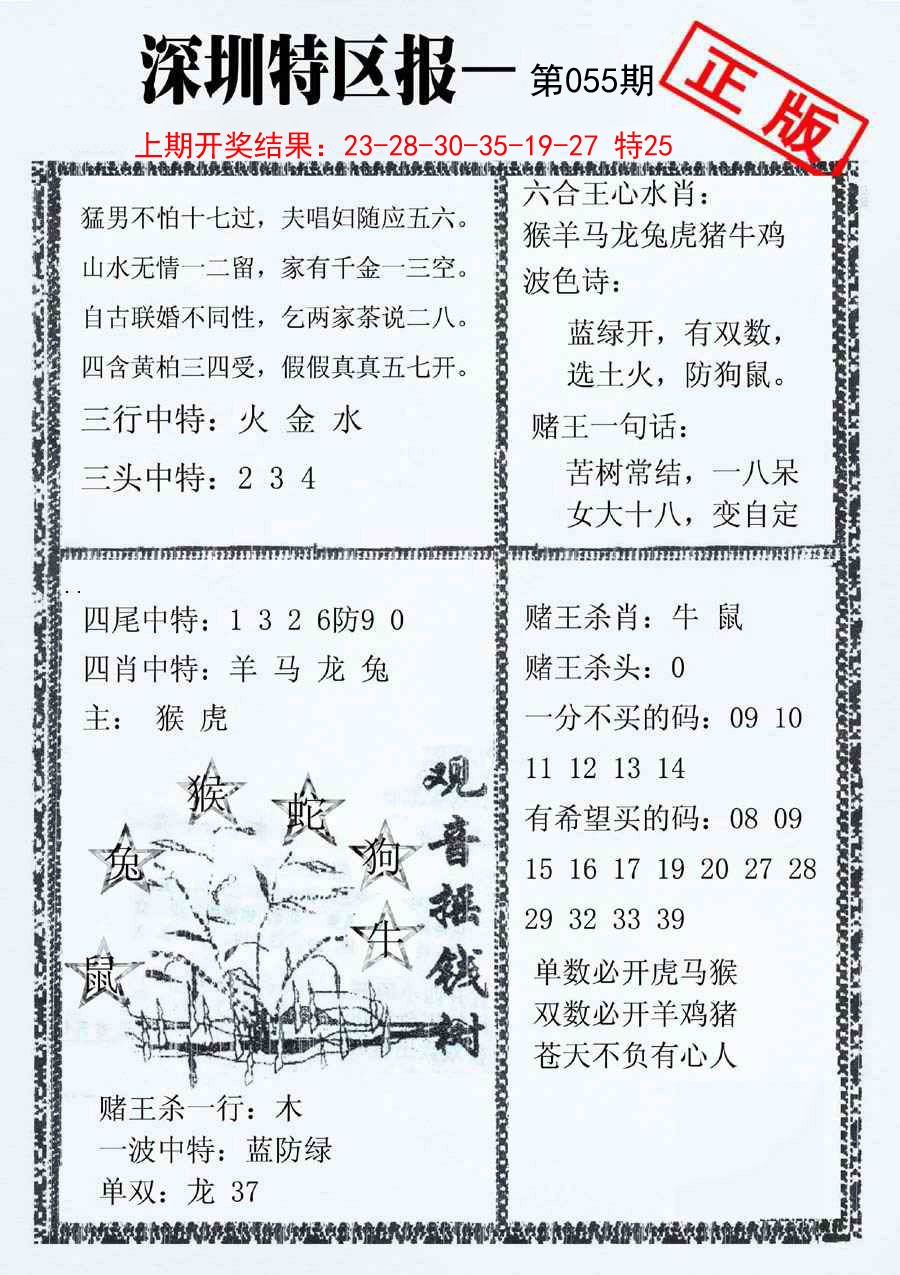 深圳特区报—
第055期
正版
上期开奖结果：23-28-30-35-19-27 特25
猛男不怕十七过，夫唱妇随应五六。
山水无情一二留，家有千金一三空。
自古联婚不同性，乞两家茶说二八。
四含黄柏三四受，假假真真五七开。
三行中特：火 金 水
三头中特：2 3 4
六合王心水肖：
猴羊马龙兔虎猪牛鸡
波色诗：
蓝绿开，有双数，
选土火，防狗鼠。
赌王一句话：
苦树常结，一八呆
女大十八，变自定
四尾中特：1 3 2 6防9 0
四肖中特：羊 马 龙 兔
主： 猴 虎
猴
蛇
兔
狗
牛
鼠
观音摇钱树
赌王杀一行：木
一波中特：蓝防绿
单双：龙 37
赌王杀肖：牛 鼠
赌王杀头：0
一分不买的码：09 10
11 12 13 14
有希望买的码：08 09
15 16 17 19 20 27 28
29 32 33 39
单数必开虎马猴
双数必开羊鸡猪
苍天不负有心人